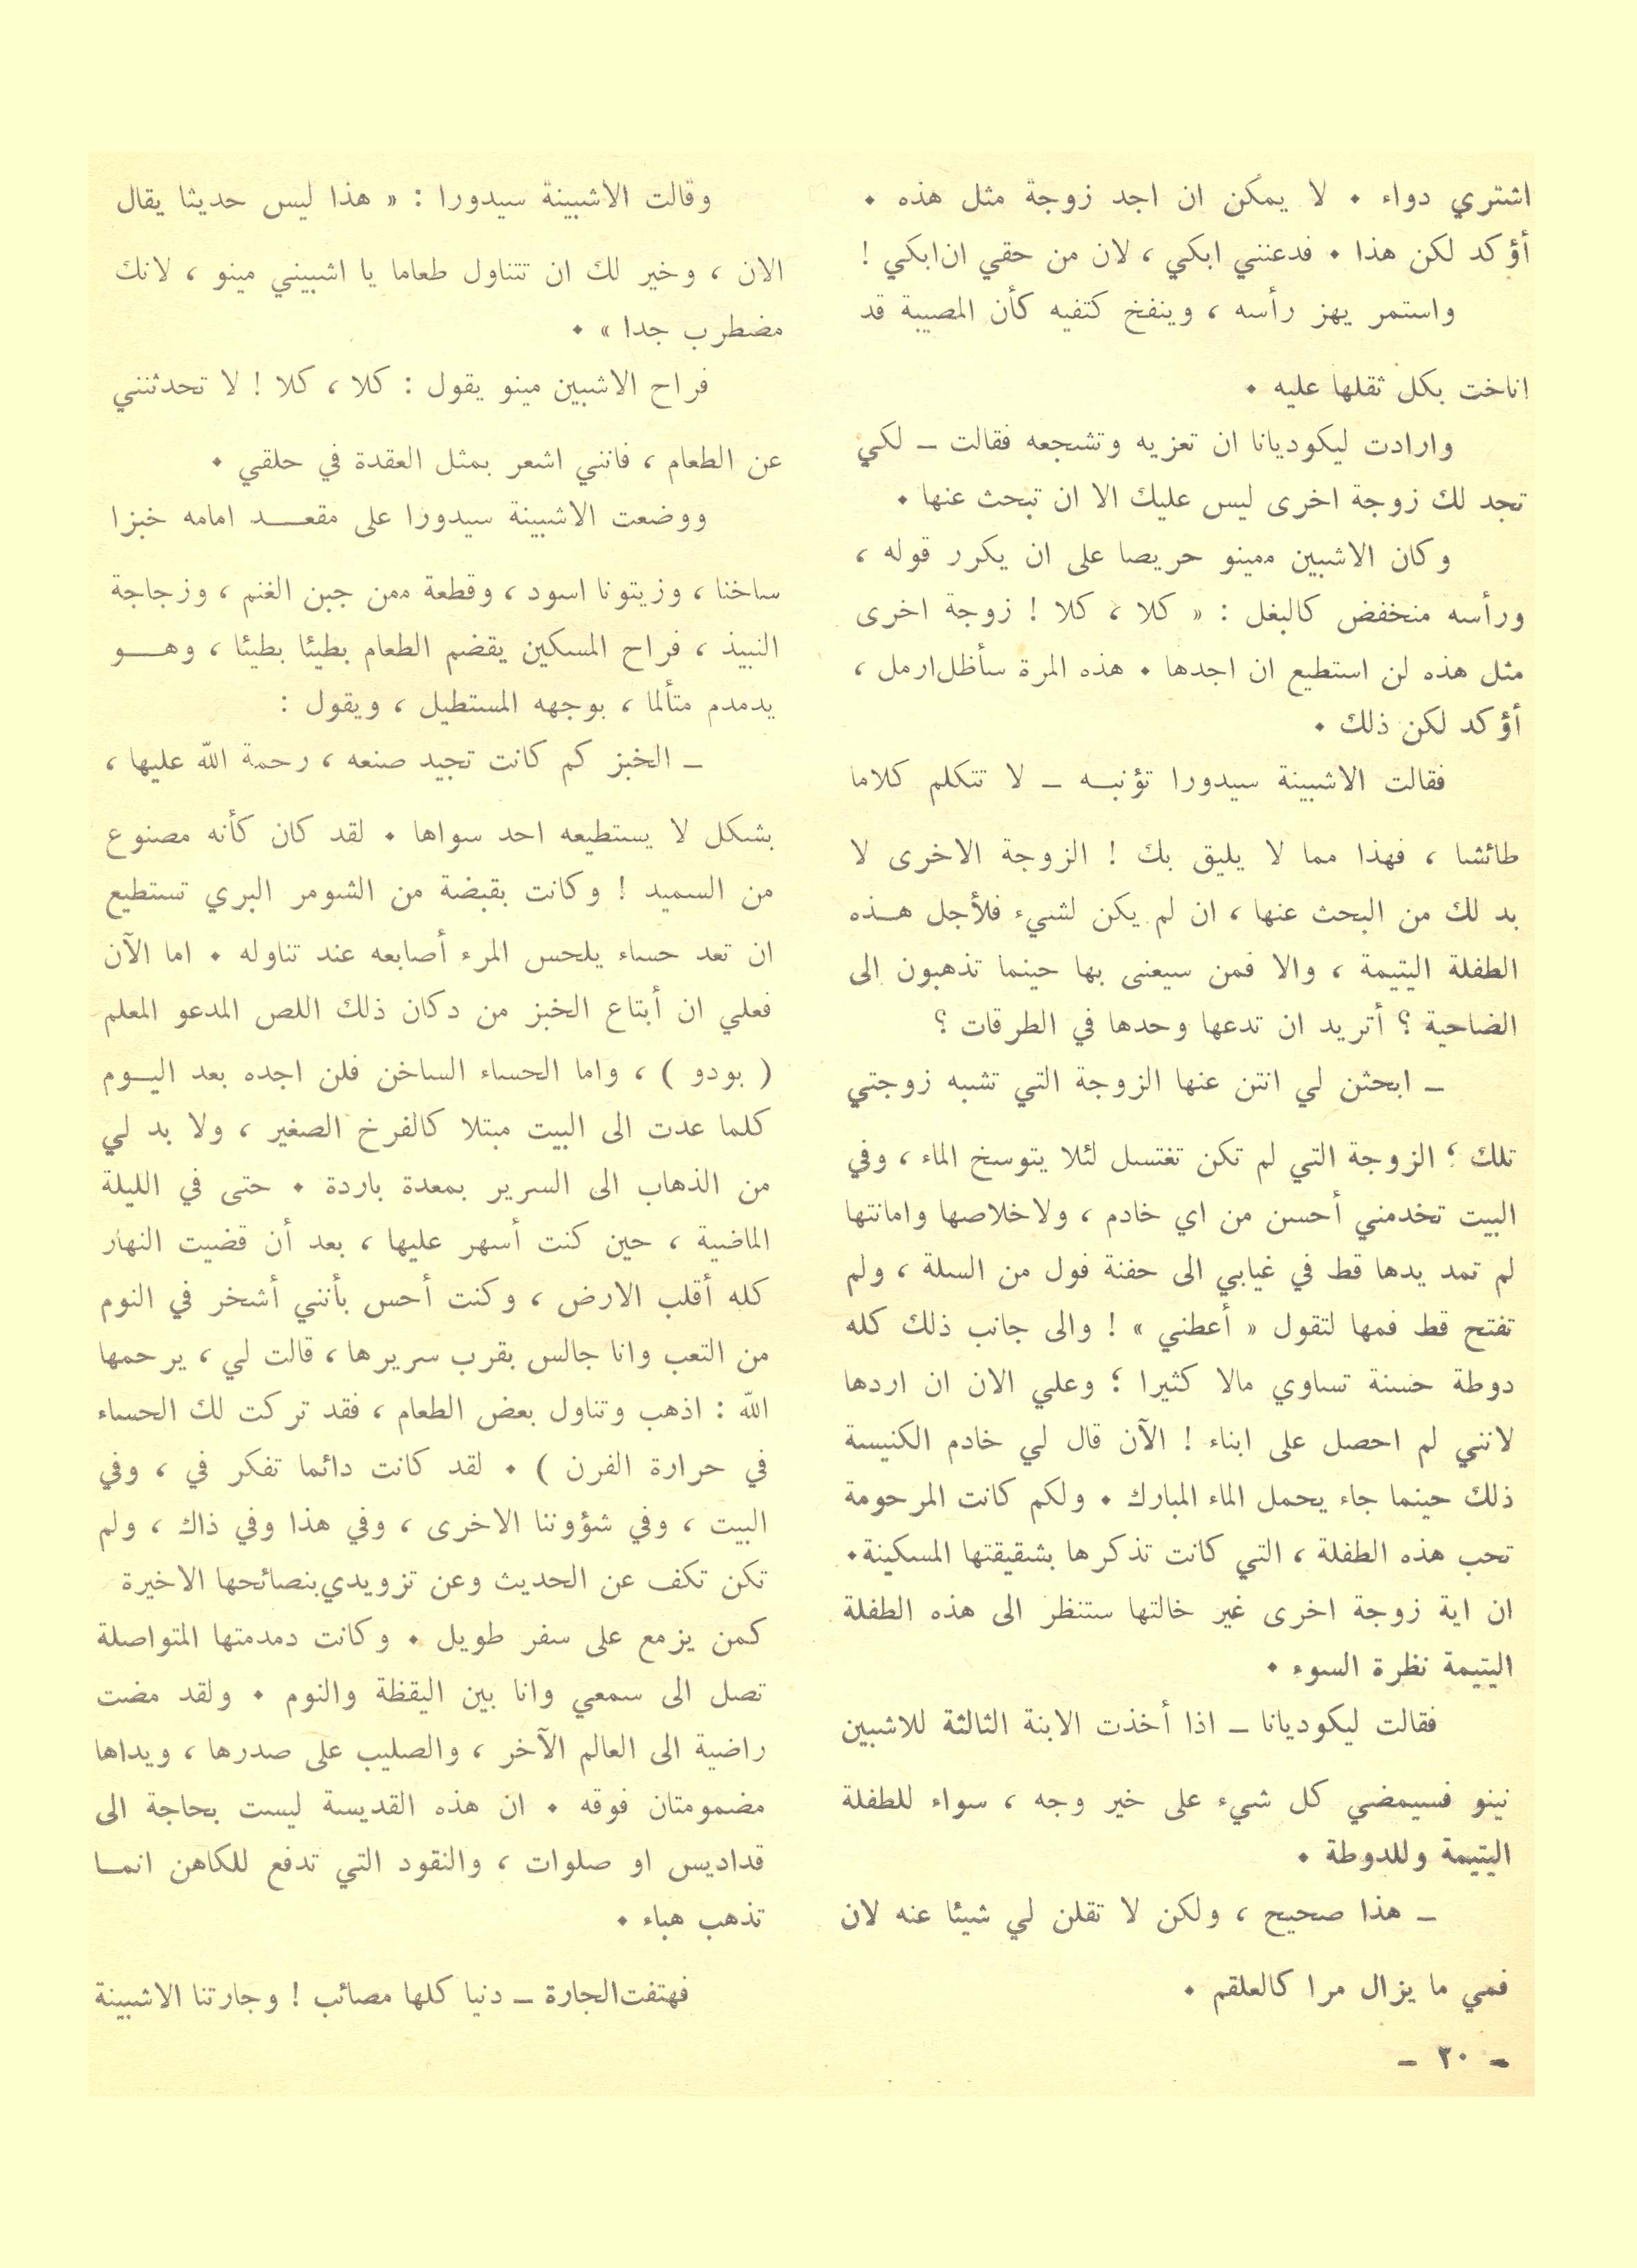 اشتري دواء . لا يمكن ان اجد زوجة مثل هذه .
أؤكد لكن هذا . فدعنني ابكي ، لان من حقي ان ابكي !
واستمر يهز رأسه ، وينفخ كتفيه كأن المصيبة قد
اناخت بكل ثقلها عليه .
وارادت ليكوديانا ان تعزيه وتشجعه فقالت ـ لكي
تجد لك زوجة اخرى ليس عليك الا ان تبحث عنها .
وكان الاشبين ممينو حريصا على ان يكرر قوله ،
ورأسه منخفض كالبغل : « كلا ، كلا ! زوجة اخرى
مثل هذه لن استطيع ان اجدها . هذه المرة سأظل ارمل ،
أؤكد لكن ذلك .
فقالت الاشبينة سيدورا تؤنبه ـ لا تتكلم كلاما
طائشا ، فهذا مما لا يليق بك ! الزوجة الاخرى لا
بد لك من البحث عنها ، ان لم يكن لشيء فلأجل هذه
الطفلة اليتيمة ، والا فمن سيعنى بها حينما تذهبون الى
الضاحية ؟ أتريد ان تدعها وحدها في الطرقات ؟
ـ ابحثن لي انتن عنها الزوجة التي تشبه زوجتي
تلك ؛ الزوجة التي لم تكن تغتسل لئلا يتوسخ الماء ، وفي
البيت تخدمني أحسن من اي خادم ، ولاخلاصها وامانتها
لم تمد يدها قط في غيابي الى حفنة فول من السلة ، ولم
تفتح قط فمها لتقول « أعطني » ! والى جانب ذلك كله
دوطة حسنة تساوي مالا كثيرا ؛ وعلي الان ان اردها
لانني لم احصل على ابناء ! الآن قال لي خادم الكنيسة
ذلك حينما جاء يحمل الماء المبارك . ولكم كانت المرحومة
تحب هذه الطفلة ، التي كانت تذكرها بشقيقتها المسكينة.
ان اية زوجة اخرى غير خالتها ستنظر الى هذه الطفلة
اليتيمة نظرة السوء .
فقالت ليكوديانا ـ اذا أخذت الابنة الثالثة للاشبين
نينو فسيمضي كل شيء على خير وجه ، سواء للطفلة
اليتيمة وللدوطة .
ـ هذا صحيح ، ولكن لا تقلن لي شيئا عنه لان
فمي ما يزال مرا كالعلقم .
وقالت الاشبينة سيدورا : « هذا ليس حديثا يقال
الان ، وخير لك ان تتناول طعاما يا اشبيني مينو ، لانك
مضطرب جدا » .
فراح الاشبين مينو يقول : كلا ، كلا ! لا تحدثنني
عن الطعام ، فانني اشعر بمثل العقدة في حلقي .
ووضعت الاشبينة سيدورا على مقعد امامه خبزا
ساخنا ، وزيتونا اسود ، وقطعة ممن جبن الغنم ، وزجاجة
النبيذ ، فراح المسكين يقضم الطعام بطيئا بطيئا ، وهو
يدمدم متألما ، بوجهه المستطيل ، ويقول :
ـ الخبز كم كانت تجيد صنعه ، رحمة الله عليها ،
بشكل لا يستطيعه احد سواها . لقد كان كأنه مصنوع
من السميد ! وكانت بقبضة من الشومر البري تستطيع
ان تعد حساء يلحس المرء أصابعه عند تناوله . اما الآن
فعلي ان أبتاع الخبز من دكان ذلك اللص المدعو المعلم
( بودو ) ، واما الحساء الساخن فلن اجده بعد اليوم
كلما عدت الى البيت مبتلا كالفرخ الصغير ، ولا بد لي
من الذهاب الى السرير بمعدة باردة . حتى في الليلة
الماضية ، حين كنت أسهر عليها ، بعد أن قضيت النهار
كله أقلب الارض ، وكنت أحس بأنني أشخر في النوم
من التعب وانا جالس بقرب سريرها ، قالت لي ، يرحمها
الله : اذهب وتناول بعض الطعام ، فقد تركت لك الحساء
في حرارة الفرن ) . لقد كانت دائما تفكر في ، وفي
البيت ، وفي شؤوننا الاخرى ، وفي هذا وفي ذاك ، ولم
تكن تكف عن الحديث وعن تزويدي بنصائحها الاخيرة
كمن يزمع على سفر طويل . وكانت دمدمتها المتواصلة
تصل الى سمعي وانا بين اليقظة والنوم . ولقد مضت
راضية الى العالم الآخر ، والصليب على صدرها ، ويداها
مضمومتان فوقه . ان هذه القديسة ليست بحاجة الى
قداديس او صلوات ، والنقود التي تدفع للكاهن انما
تذهب هباء .
فهتفت الجارة ـ دنيا كلها مصائب ! وجارتنا الاشبينة
ـ ٣٠ ـ